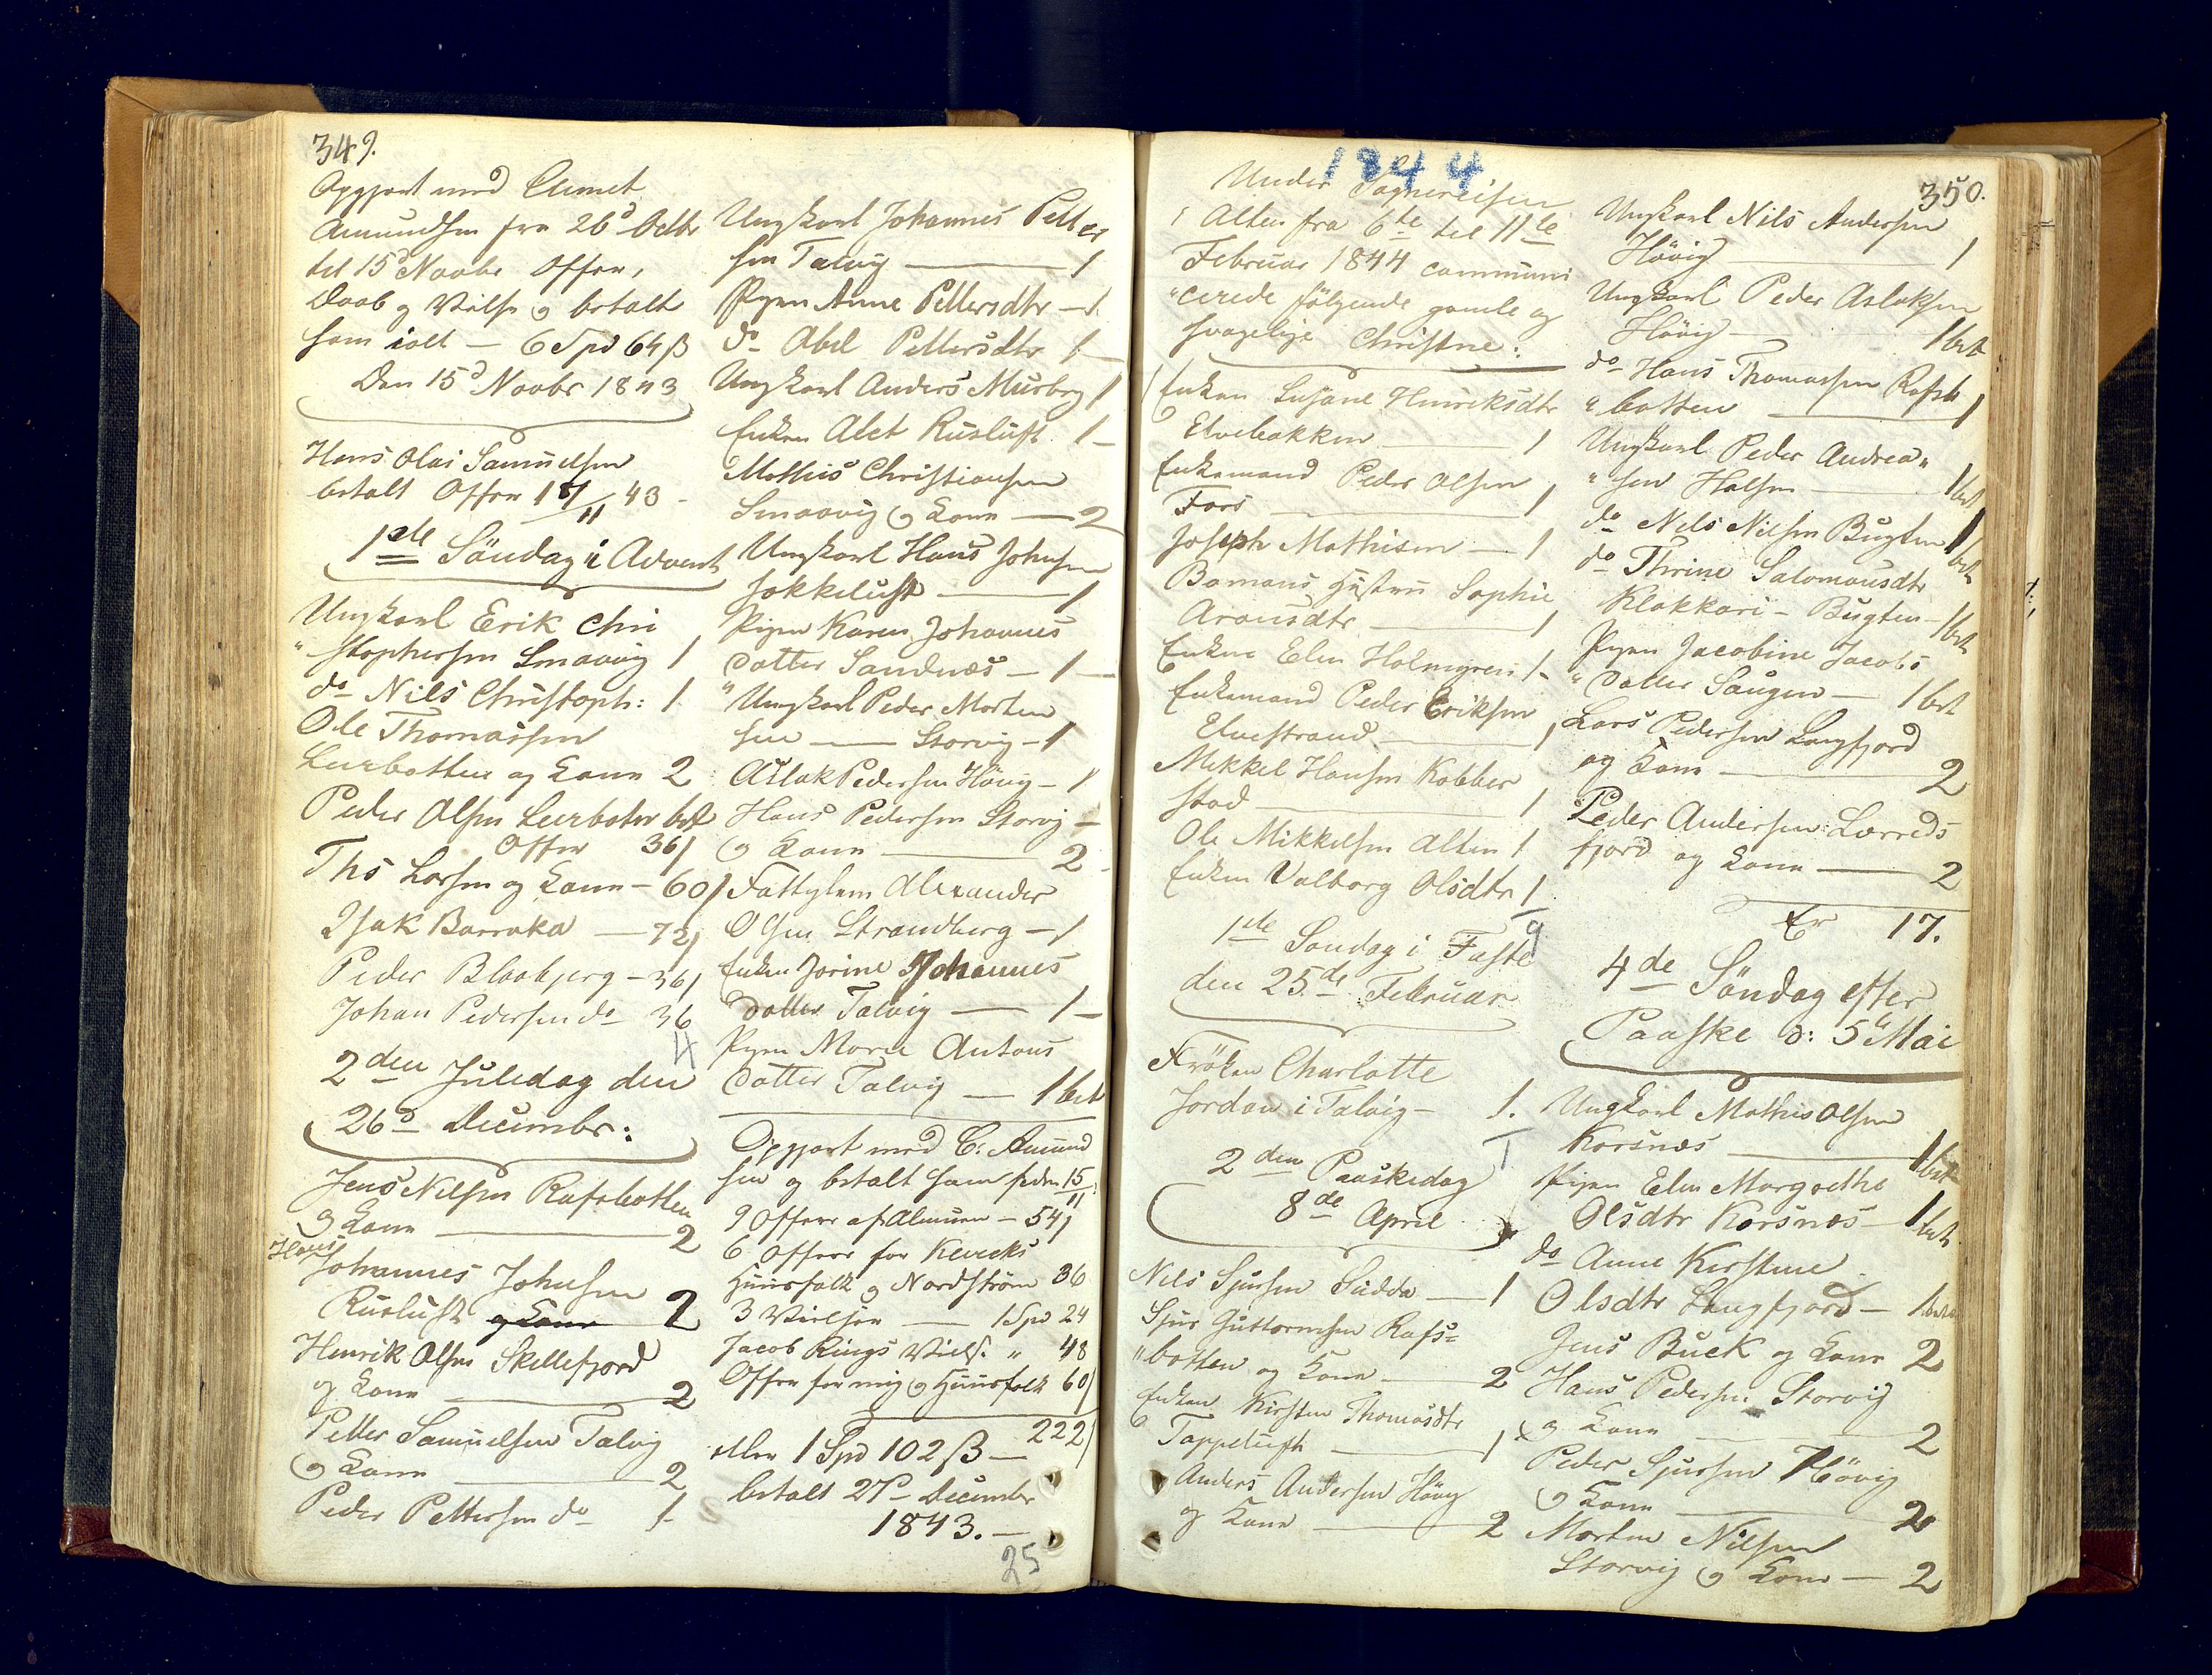 349.
Opgjort med Clemet
Amundsen fra 26d Octbr
til 15d Novbr Offer,
Daab og Vielse og betalt
ham ialt — 6 Spd 64 ß
Den 15d Novbr 1843
Hans Olai Samuelsen
betalt Offer 43 -
1ste Söndag i Advent
Ungkarl Erik Chri
"stophersen Smaavig 1
do Nils Christoph: 1
Ole Thomassen
Leerbotten og Kone 2
Peder Olsen Leerbotn bet
Offer 36
Ths Larsen og Kone — 60
Isak Barraka — 72
Peder Blaabjerg — 36
Johan Pedersen do 36
4
2den Juledag den
26d Decembr:
Jens Nilsen Rafsbotten
og Kone — 2
Hans
Johannes Johnsen
Rusluft og Kone 2
Henrik Olsen Skillefjord
og Kone — 2
Petter Samuelsen Talvig
og Kone — 2
Peder Pettersen do 1
Ungkarl Johannes Petter
sen Talvig — 1
Pigen Anne Pettersdtr — 1
do Abel Pettersdtr 1 —
Ungkarl Anders Murberg 1
Enken Alet Rusluft 1 —
Mathis Christiansen
Smaavig og Kone — 2
Ungkarl Hans Johnsen
Jokkeluft — 1
Pigen Karen Johannes
datter Sandnæs — 1 —
"Ungkarl Peder Morten
sen — Storvig — 1
Aslak Pedersen Hövig — 1
Hans Pedersen Storvig —
og Kone — 2
Fattiglem Alexander
Olsen Strandberg — 1
Enken Jorine Johannes
datter Talvig — 1 —
Pigen Marie Antons
datter Talvig — 1 bet
Opgjort med C: Amund
sen og betalt ham siden 15/11:
9 Offere af Almuen — 54
6 Offere for Kevreks
Huusfolk og Nordström 36
3 Vielser — 1 Spd 24
Jacob Rings Viels: " 48
Offer for mig og Huusfolk 60
222
eller 1 Spd 102 ß —
betalt 27d Decembr
1843. —
25
1844
350.
Under Sognereisen
i Alten fra 6te til 11te
Februar 1844 communi
"cerede fölgende gamle og
svagelige Christne:
Enken Susane Henriksdtr
Elvebakken — 1
Enkemand Peder Olsen
Fors — 1
Joseph Mathisen — 1
Bamans Hustru Sophie
Aronsdtr — 1
Enken Elen Holmgren 1 -
Enkemand Peder Eriksen
Elvestrand — 1
Mikkel Hansen Kobber
stad — 1
Ole Mikkelsen Alten 1
Enken Valborg Olsdtr 1
9
1ste Söndag i Faste
den 25de Februar
Fröken Charlotte
Jordan i Talvig — 1.
1
2den Paaskedag
8de April
Nils Sjursen Sudda — 1
Sjur Guttormsen Rafs=
"botten og Kone — 2
Enken Kirsten Thomasdtr
Tappeluft — 1
Anders Andersen Hövig
og Kone — 2
Ungkarl Nils Andersen
Hövig — 1
Ungkarl Peder Aslaksen
Hövig — 1 bet
do Hans Thomassen Rafs
"botten — 1
Ungkarl Peder Andrea"
"sen Halsen — 1 bet
do Nils Nilsen Bugten 1 bet
do Thrine Salomonsdtr
Klakkari - Bugten — 1 bet
Pigen Jacobine Jacobs
"datter Saugen — 1 bet
Lars Pedersen Langfjord
og Kone — 2
Peder Andersen Lerreds
fjord og Kone — 2
Er 17.
4de Söndag efter
Paaske d: 5te Mai
Ungkarl Mathis Olsen
Korsnæs — 1 bet
Pigen Elen Margrethe
Olsdtr Korsnæs — 1 bet
do Anne Kirstine
Olsdtr Langfjord — 1 bet
Jens Buck og Kone 2
Hans Pedersen Storvig
og Kone — 2
Peder Sjursen Hövig
og Kone — 2
Morten Nilsen
Storvig og Kone — 2